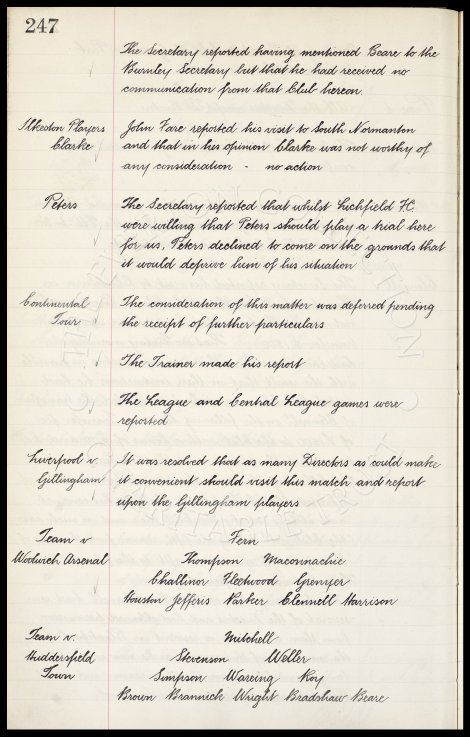 247
The Secretary reported having mentioned Beare to the
Burnley Secretary but that he had received no
communication from that Club hereon.
Ilkeston Players
Clarke
John Fare reported his visit to South Normanton
and that in his opinion Clarke was not worthy of
any consideration - no action
Peters
The Secretary reported that whilst Lichfield F.C.
were willing that Peters should play a trial here
for us, Peters declined to come on the grounds that
it would deprive him of his situation
Continental
Tour
The consideration of this matter was deferred pending
the receipt of further particulars
The Trainer made his report
The League and Central League games were
reported
Liverpool v
Gillingham
It was resolved that as many Directors as could make
it convenient should visit this match and report
upon the Gillingham players
Team v
Woolwich Arsenal
Fern
Thompson Maconnachie
Challinor Fleetwood Grenyer
Houston Jefferis Parker Clennell Harrison
Team v.
Huddersfield
Town
Mitchell
Stevenson Weller
Simpson Wareing Roy
Brown Brannick Wright Bradshaw Beare